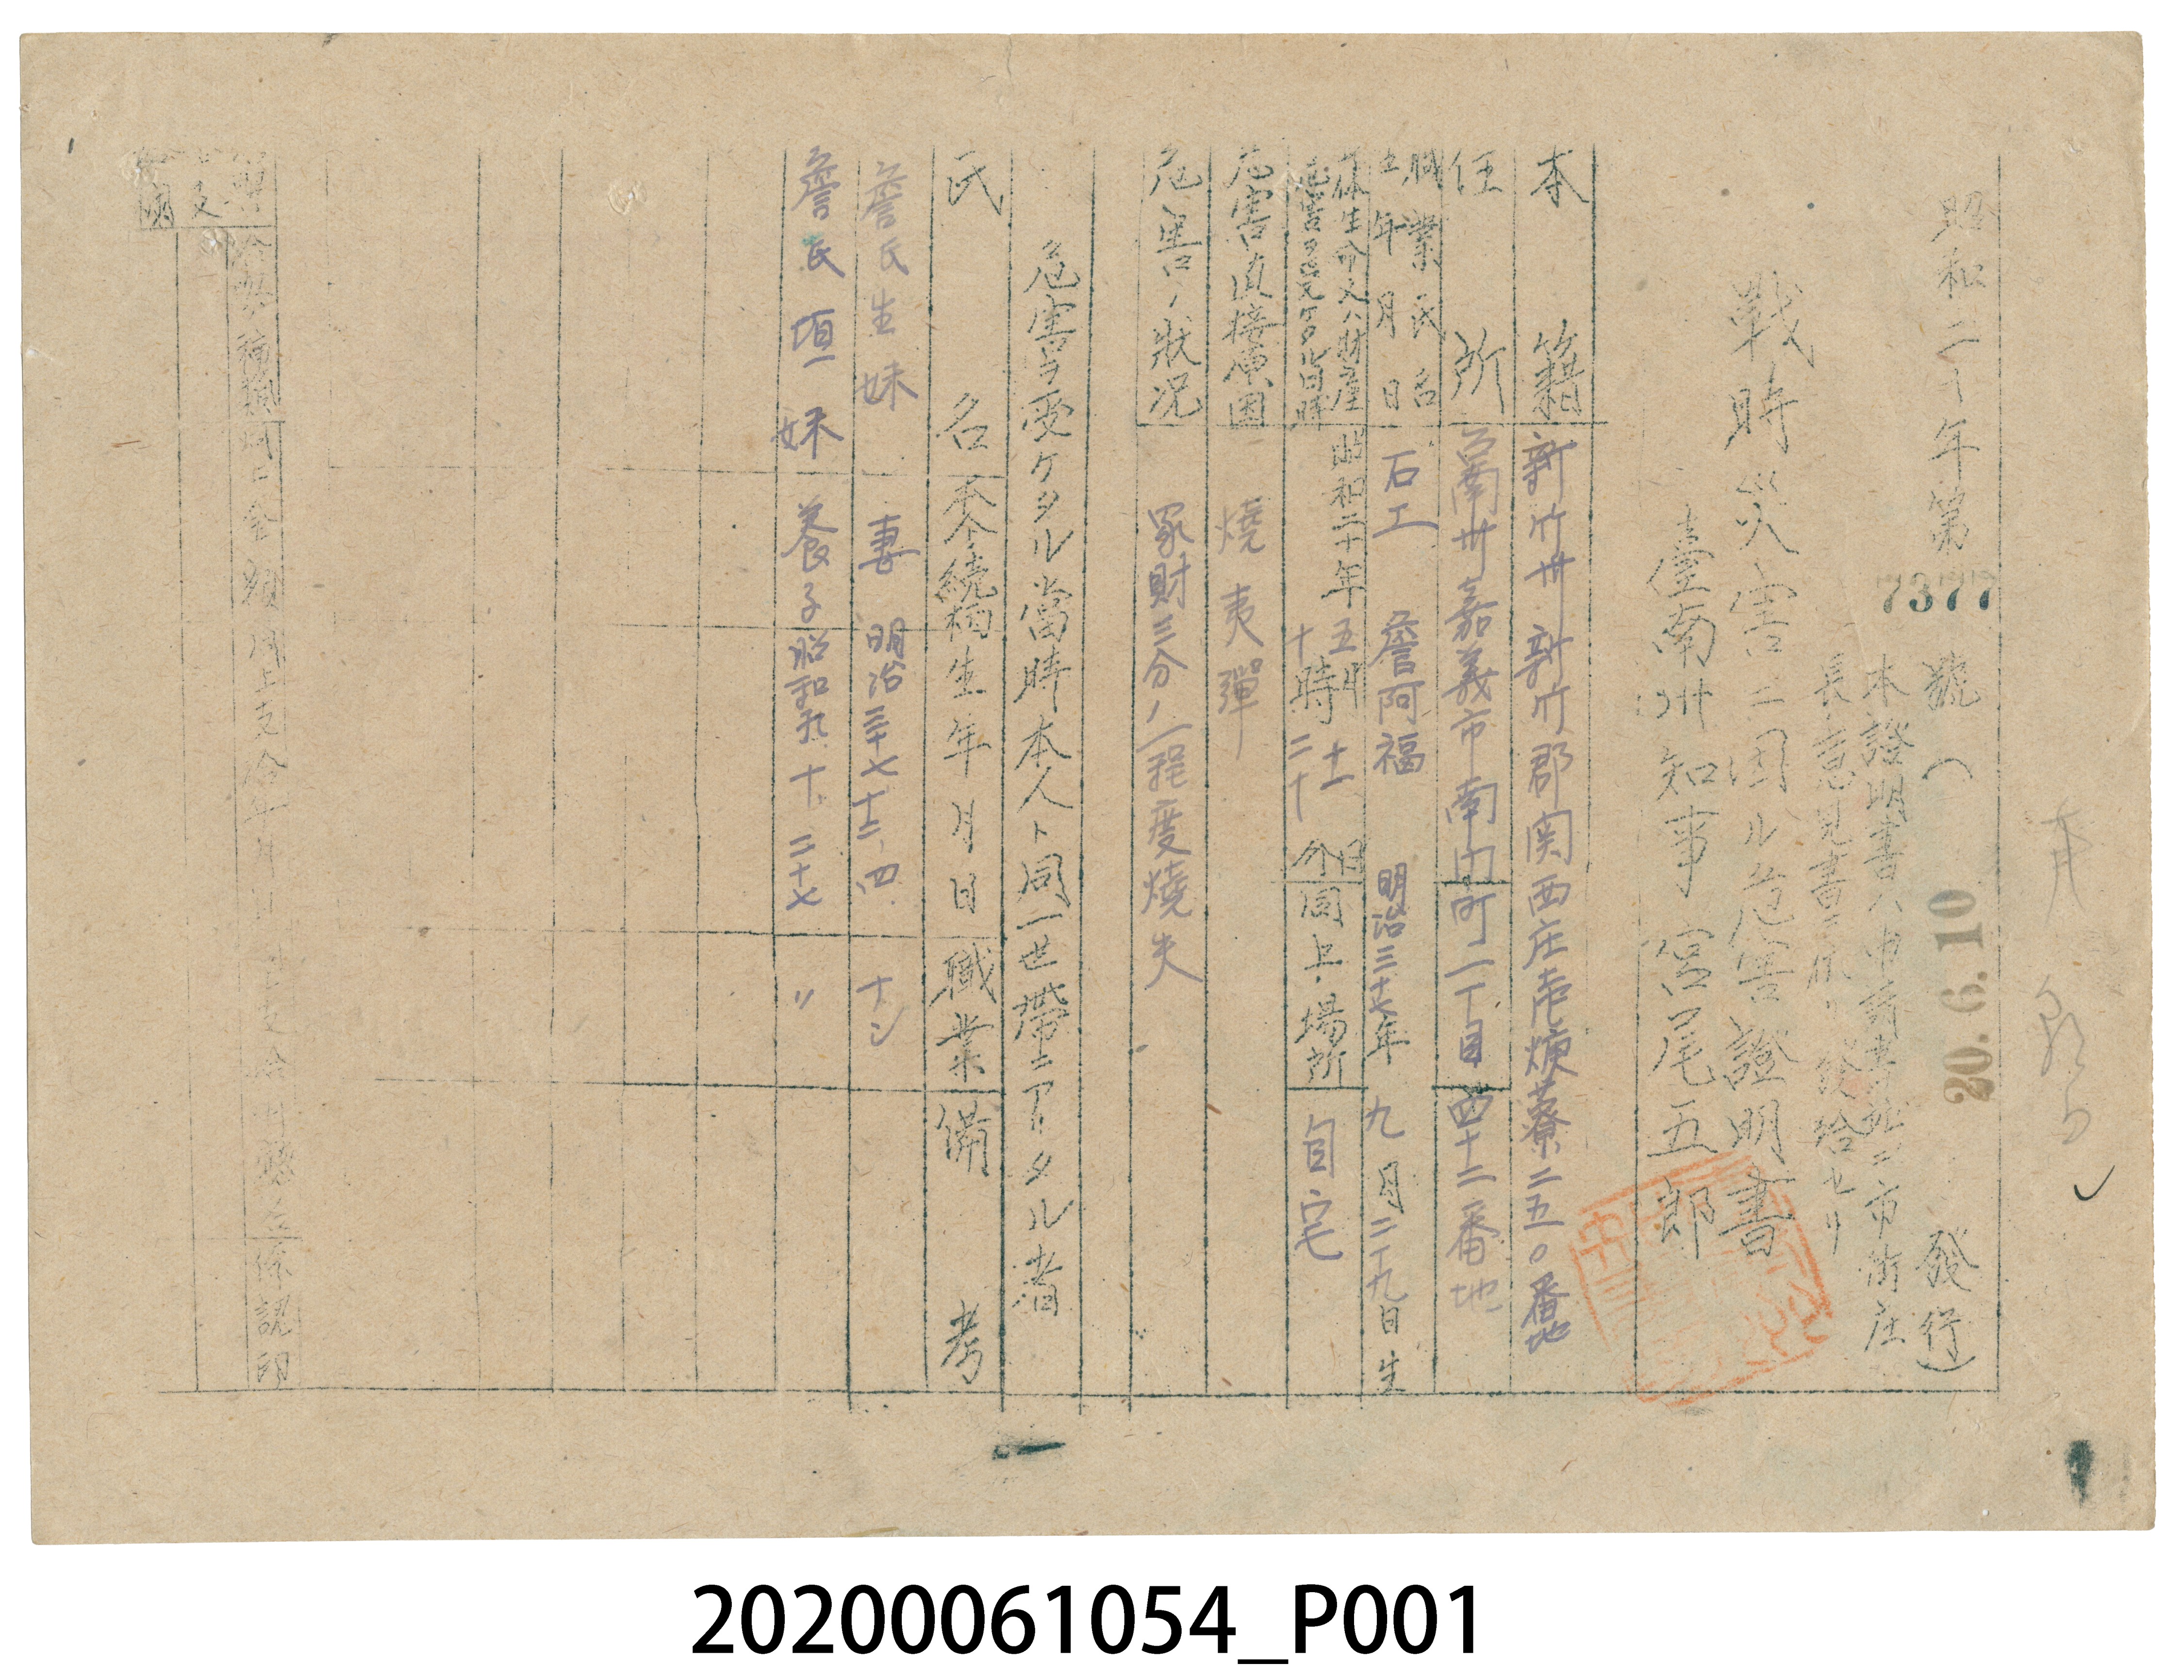 昭和二十年第7377號(20.6.10發行)
本證明書ハ申請書竝ニ市街庄
長意見書ニ依リ發給セリ
戰時災害ニ因ル危害證明書
臺南州知事 宮尾五郎
本籍 新竹州新竹郡関西庄老焿藔二五〇番地
住所 台南州嘉義市南門町一丁目四十二番地
職業氏名 石工 詹阿福
生年月日 明治三十七年九月二十九日生
身体生命又ハ財産ニ危害ヲ受ケタル日時 昭和二十年五月十二日十時二十分
同上ノ場所 自宅
危害直接原因 燒夷彈
危害ノ狀況 家財三分ノ一程度燒失
危害ヲ受ケタル當時本人ト同一世帶ニアリタル者
氏名 本人トノ續柄 生年月日 職業 備考
詹氏生妹 妻 明治三十七、十二、四 ナシ
詹氏垣妹 養子 昭和九、十、二十七 〃
給與種類 同上金額 同上支給年月日 支給 認印
20200061054_P001